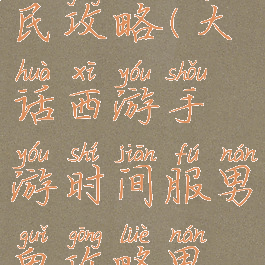 民攻略(大
huà xī yóu shǒu
话西游手
yóu shí jiān fú nán
游时间服男
guǐ gōng lüè nán
鬼攻略男